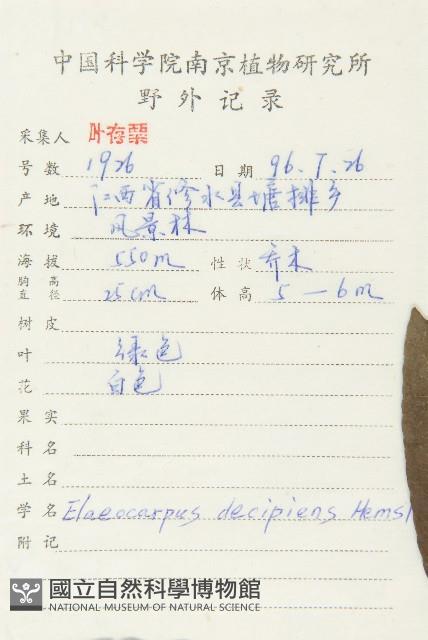 中国科学院南京植物研究所
野外记录
采集人 叶存粟
号数 1926 日期 96.7.26
产地 江西省修水县塘排乡
环境 风景林
海拔 550m 性状 乔木
胸高直径 25cm 体高 5—6m
树皮
叶 绿色
花 白色
果实
科名
土名
学名 Elaeocarpus decipiens Hemsl
附记
國立自然科學博物館
NATIONAL MUSEUM OF NATURAL SCIENCE